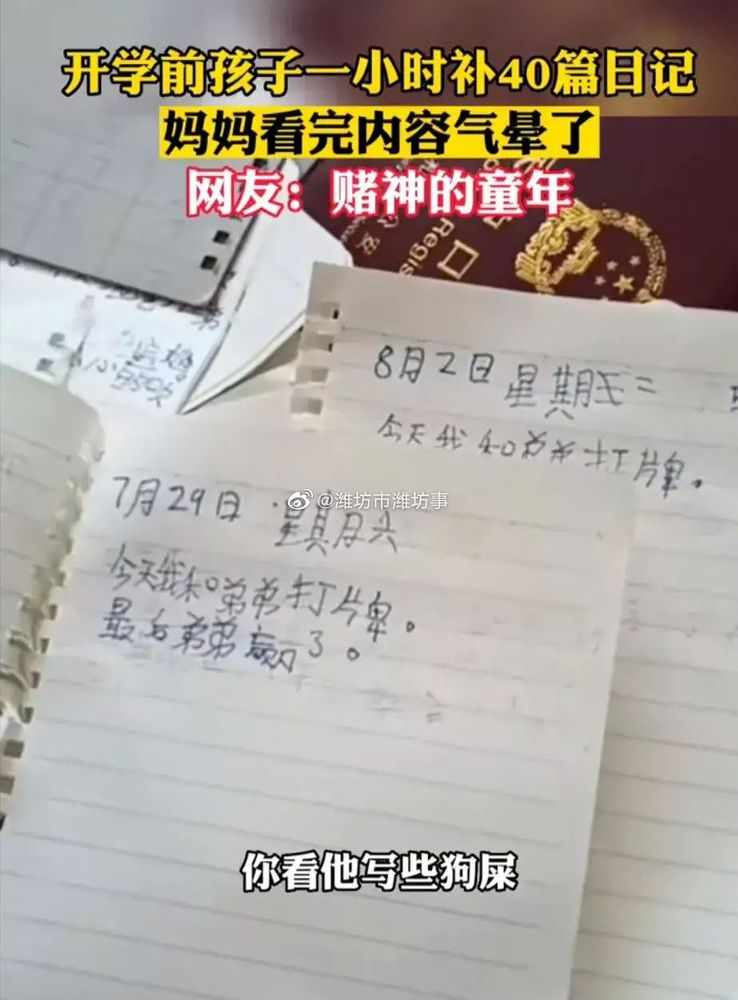 开学前孩子一小时补40篇日记
妈妈看完内容气晕了
网友：赌神的童年
8月2日 星期二
今天我和弟弟打牌。
@潍坊市潍坊事
7月29日 星期六
今天我和弟弟打牌。
最后弟弟赢了。
你看他写些狗屎